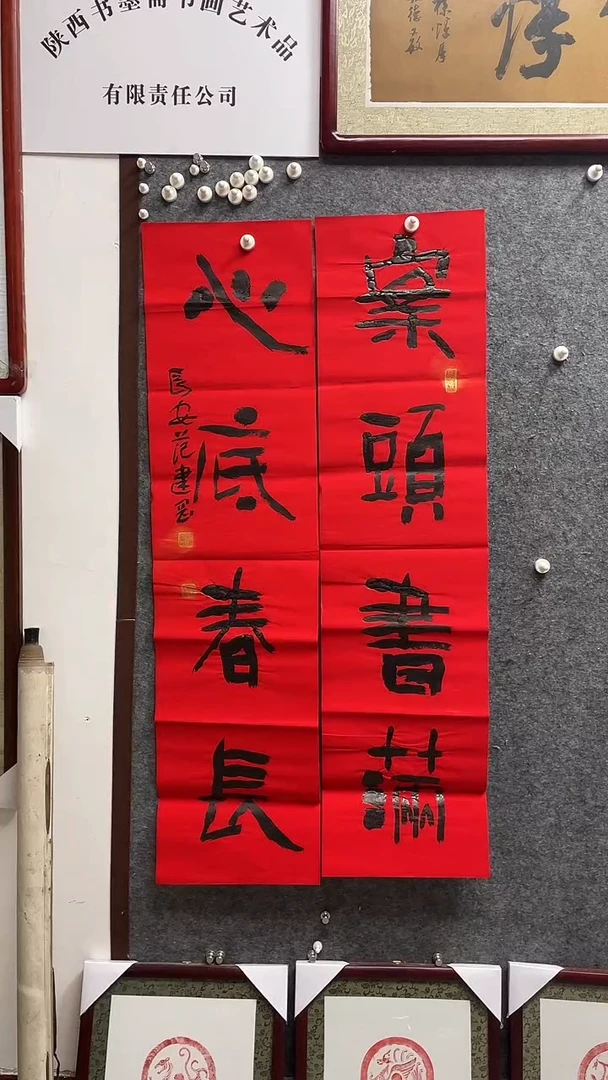 陕西书墨斋书画艺术品
有限责任公司
案頭書滿
心底春長
長安范建